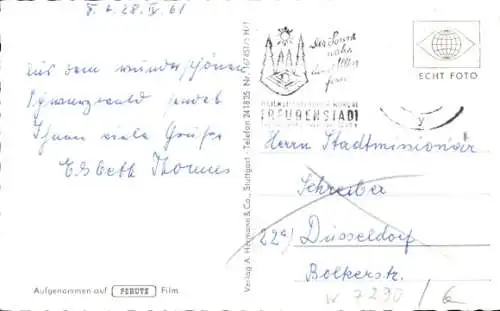 28.IV.61
Aus dem wunderschönen
Schwarzwald sendet
Ihnen viele Grüße
Elsbeth Thomes
Aufgenommen auf PERUTZ Film
Verlag A. Hermann & Co., Stuttgart - Telefon 241835
Der Sonne
nahe
dem Alltag
fern
FREUDENSTADT
ECHT FOTO
Herrn Stadtmissionar
Schreiber
22a) Düsseldorf
Bolkerstr.
W 7290/6